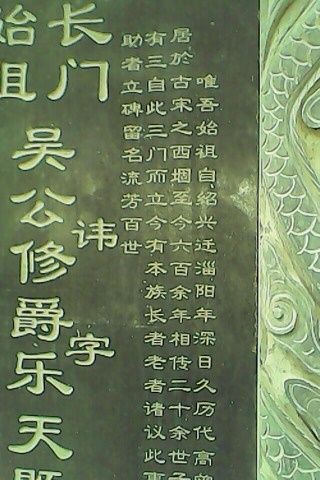 唯吾始祖自绍兴迁淄阳年深日久历代高曾
居於古宋之西堌至今六百余年相传二十余世子
有三自此三门而立今有本族长者老者诸议此事
助者立碑留名流芳百世
长门
始祖
吴公修爵乐天
讳
字